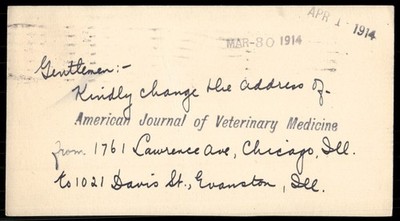 APR 1 - 1914
MAR-30 1914
Gentlemen:-
Kindly change the address of-
American Journal of Veterinary Medicine
from 1761 Lawrence Ave, Chicago, Ill.
to 1021 Davis St., Evanston, Ill.